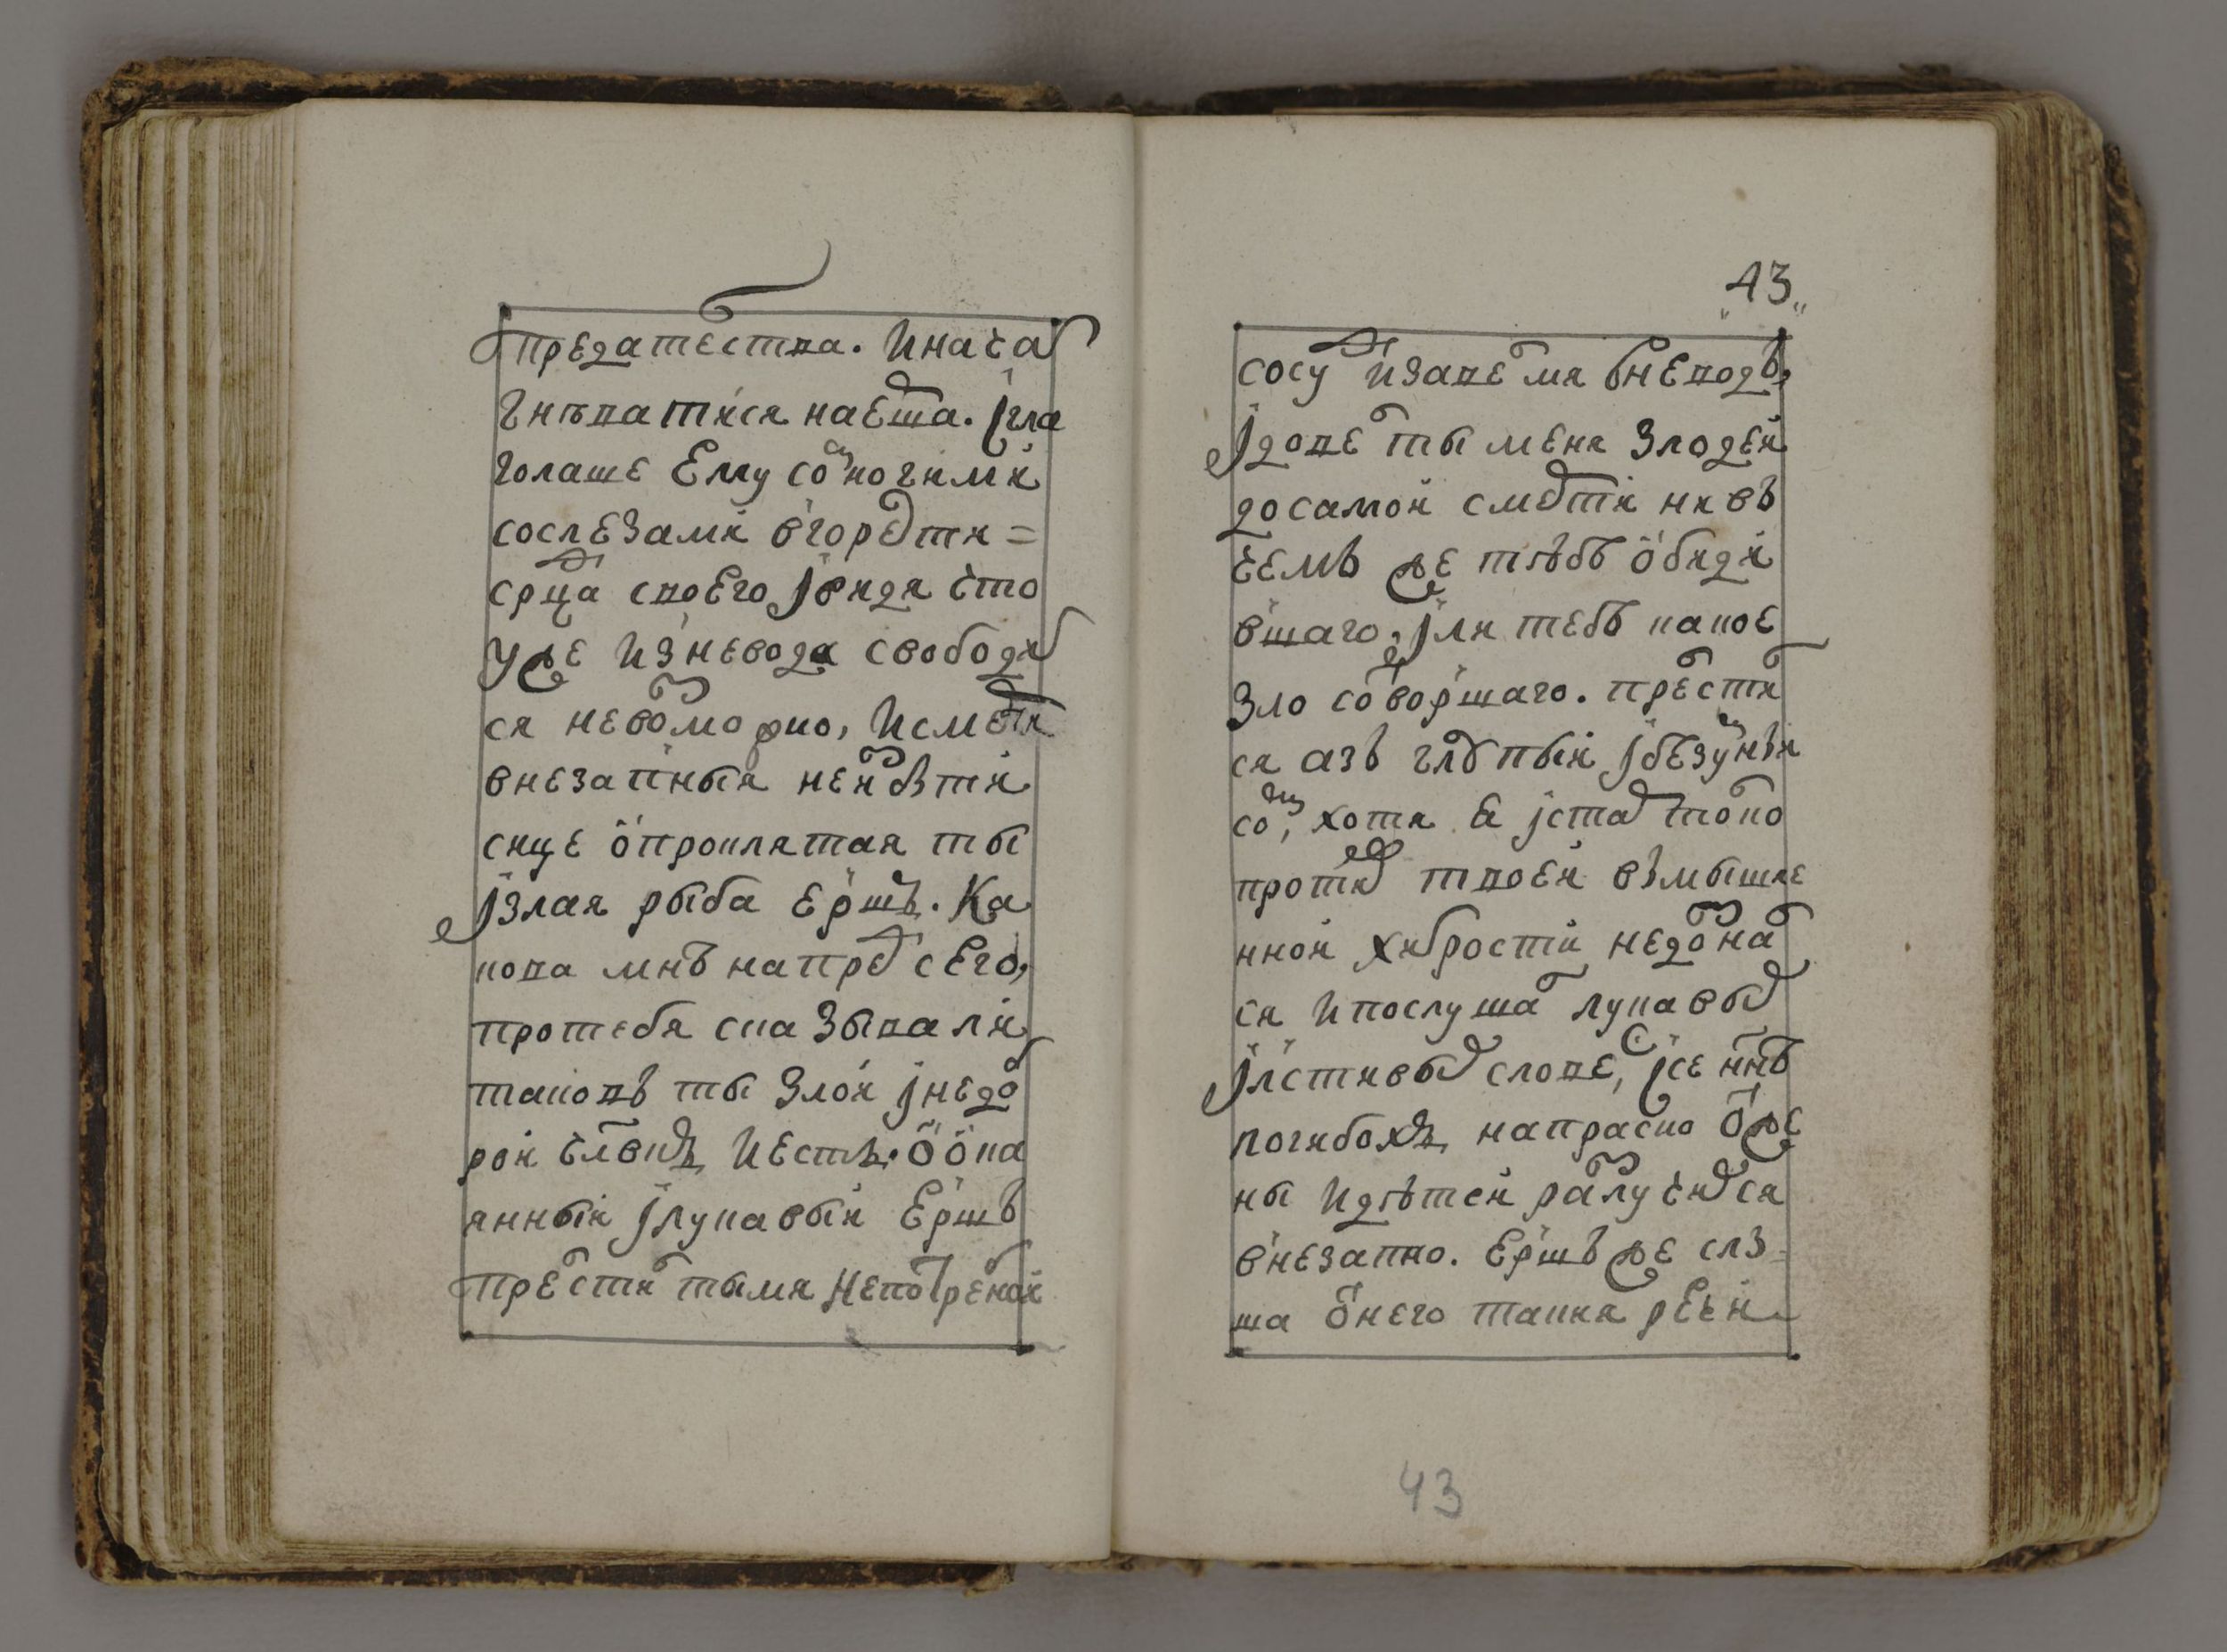 предателства. Инача
гнѣватися наерша. Ігла
голаше Ему сомногими
сослезами вгорести =
срца своего Јвидя что
уже изневода свободи
ся невозможно, исмерти
внезапныя неизбѣти
сице ӧпроклятая ты
Јзлая рыба Ершъ. Ка
кова мнѣ напред сего,
протебя сказывали
таковъ ты Злой Јнедоб
рой члвкъ иесть. Ӧ ӧка
янный Јлукавый Ершъ
прелстил тымя непотребной
43
сосуд изавел мя вневодъ,
Јдовел ты меня Злодей
досамой смерти ни въ
чемъ же тѣбѣ ӧбиди
вшаго, Јли тебѣ какое
Зло сотворшаго. прелстил
ся азъ глупый Јбезумный
сом, хотя Я Јстар толко
против твоей вымышле
нной хитрости недознал
ся ипослушал лукавых
Јлстивых словес, Јсе ннѣ
погибохъ напрасно ӧт же
ны идѣтей разлучихся
внезапно. Ершъ же слы
ша ӧт него такия речи
43